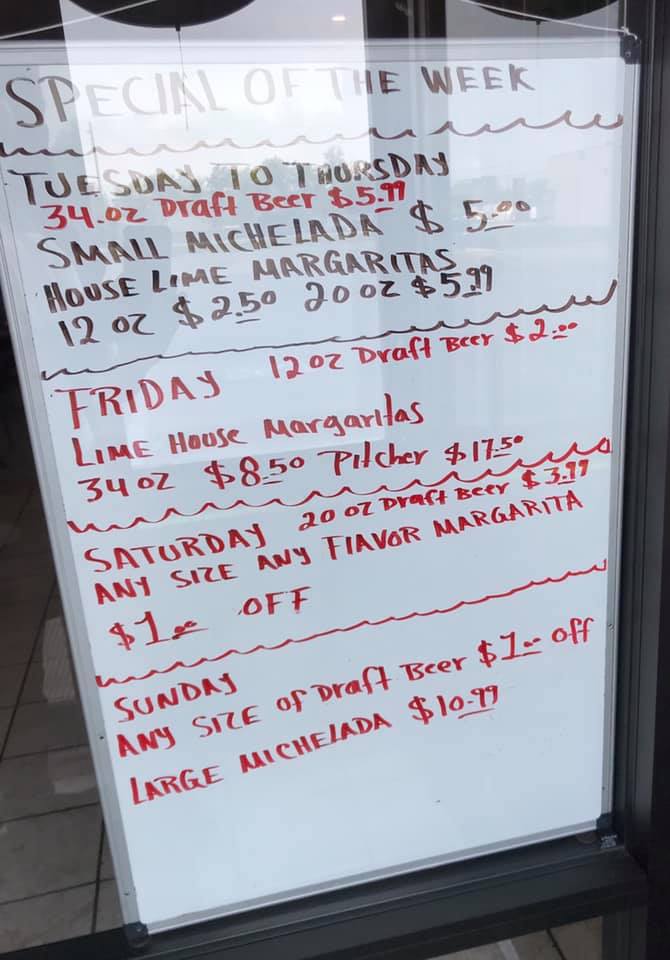 SPECIAL OF THE WEEK
TUESDAY TO THURSDAY
34.oz Draft Beer $5.99
SMALL MICHELADA $5.00
HOUSE LIME MARGARITAS
12 oz $2.50 20 oz $5.99
FRIDAY 12 oz Draft Beer $2.00
LIME HOUSE Margaritas
34 oz $8.50 Pitcher $17.50
SATURDAY 20 oz Draft Beer $3.99
ANY SIZE ANY FlAVOR MARGARITA
$1.00 OFF
SUNDAY
ANY SIZE of Draft Beer $1.00 off
LARGE MICHELADA $10.99